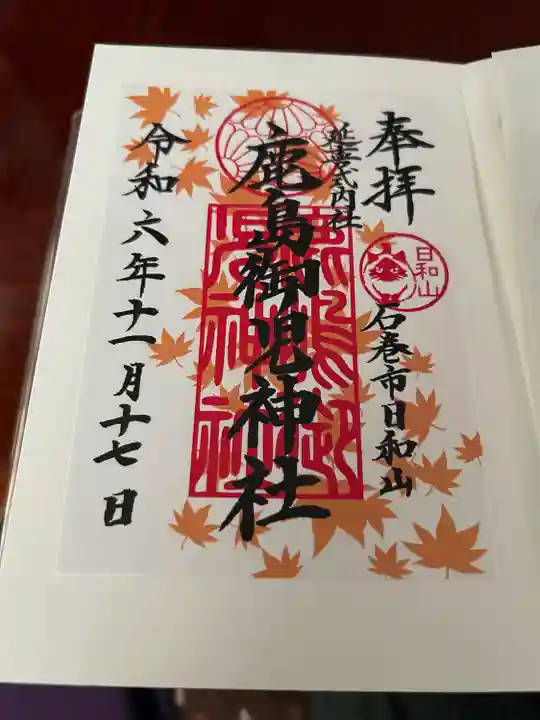 奉拝
日和山
石巻市日和山
延喜式内社
鹿島御児神社
令和六年十一月十七日